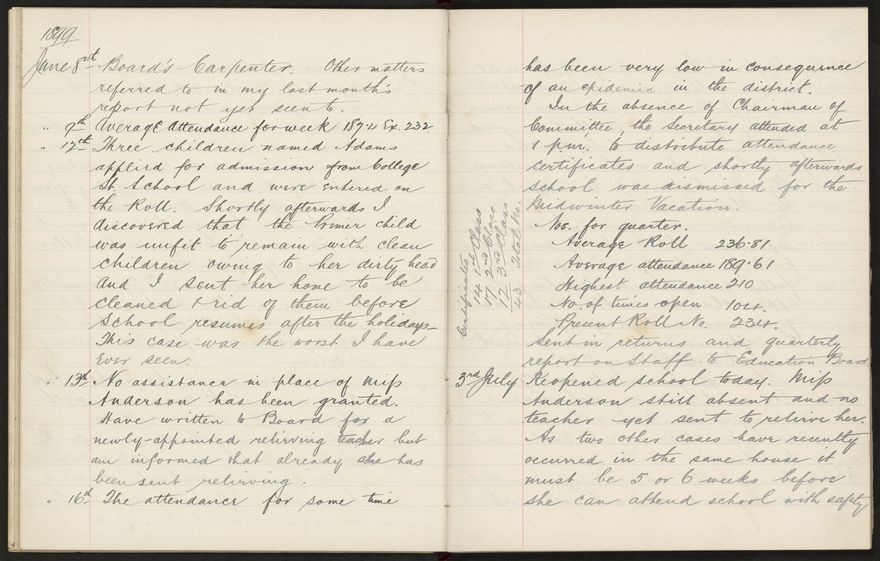 1899
June 8th Board's Carpenter. Other matters
referred to in my last month's
report not yet seen to.
" 9th Average Attendance for week 187.4 Ex. 232
" 12th Three children named Adams
applied for admission from College
St School and were entered on
the Roll. Shortly afterwards I
discovered that the Primer child
was unfit to remain with clean
children owing to her dirty head
and I sent her home to be
cleaned & rid of them before
School resumes after the holidays—
This case was the worst I have
ever seen.
" 13th No assistance in place of Miss
Anderson has been granted.
Have written to Board for a
newly-appointed relieving teacher but
am informed that already she has
been sent relieving.
" 16th The attendance for some time
has been very low in consequence
of an epidemic in the district.
In the absence of Chairman of
Committee, the Secretary attended at
1 p.m. to distribute attendance
certificates and shortly afterwards
School was dismissed for the
Midwinter Vacation.
Certificates
14 1st Class
17 2nd Class
12 3rd Class
43 Total No.
Nos. for quarter.
Average Roll 236.81
Average attendance 189.61
Highest attendance 210
No. of times open 104.
Present Roll No. 234.
Sent in returns and quarterly
report on Staff to Education Board
3rd July Reopened school today. Miss
Anderson still absent and no
teacher yet sent to relieve her.
As two other cases have recently
occurred in the same house it
must be 5 or 6 weeks before
she can attend school with safety